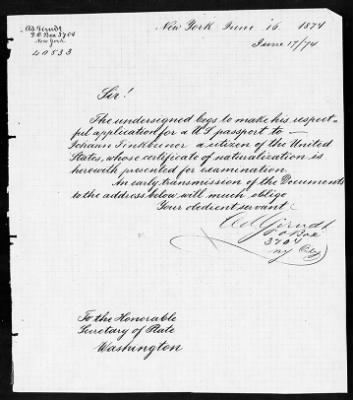 Ad Gerndt
P.O Box 3704
New York
40533
New York June 16. 1874
June 17/74
Sir!
The undersigned begs to make his respect-
ful application for a U.S. passport to —
Johann Finkbeiner a citizen of the United
States, whose certificate of naturalization is
herewith presented for examination.
An early transmission of the Documents
to the address below will much oblige
Your obedient servant
Ad Gerndt
P O Box
3704
NY City
To the Honorable
Secretary of State
Washington